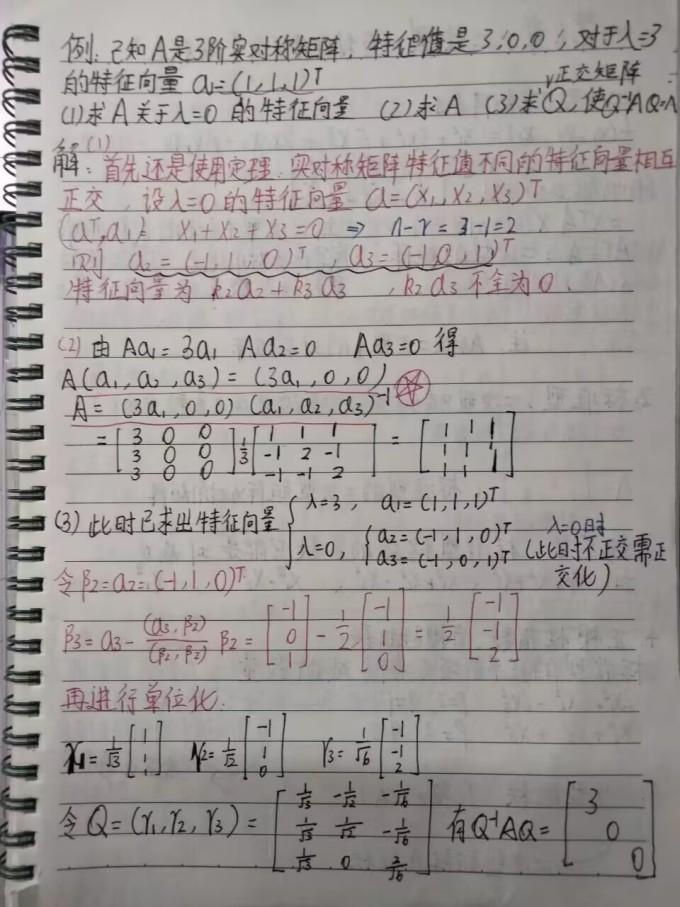 例:已知A是3阶实对称矩阵,特征值是3,0,0,对于λ=3
的特征向量 α₁=(1,1,1)ᵀ
正交矩阵
(1)求A关于λ=0的特征向量 (2)求A (3)求Q,使Q⁻¹AQ=Λ
解:(1)
首先还是使用定理,实对称矩阵特征值不同的特征向量相互
正交,设λ=0的特征向量 α=(x₁,x₂,x₃)ᵀ
(αᵀ,α₁)= x₁+x₂+x₃=0 ⇒ n-r=3-1=2
则 α₂=(-1,1,0)ᵀ,α₃=(-1,0,1)ᵀ
特征向量为 k₂α₂+k₃α₃ ,k₂α₃不全为0.
(2)由Aα₁=3α₁ Aα₂=0 Aα₃=0 得
A(α₁,α₂,α₃)=(3α₁,0,0)
A=(3α₁,0,0)(α₁,α₂,α₃)⁻¹
=[3 0 0; 3 0 0; 3 0 0] 1/3 [1 1 1; -1 2 -1; -1 -1 2] = [1 1 1; 1 1 1; 1 1 1]
(3)此时已求出特征向量 { λ=3, α₁=(1,1,1)ᵀ
λ=0, { α₂=(-1,1,0)ᵀ
α₃=(-1,0,1)ᵀ
λ=0时
(此时不正交需正
交化)
令β₂=α₂=(-1,1,0)ᵀ
β₃=α₃-(α₃,β₂)/(β₂,β₂) β₂=[-1; 0; 1]-1/2[-1; 1; 0]=1/2[-1; -1; 2]
再进行单位化.
γ₁=1/√3[1; 1; 1] γ₂=1/√2[-1; 1; 0] γ₃=1/√6[-1; -1; 2]
令Q=(γ₁,γ₂,γ₃)=[1/√3 -1/√2 -1/√6; 1/√3 1/√2 -1/√6; 1/√3 0 2/√6] 有Q⁻¹AQ=[3 0 0]